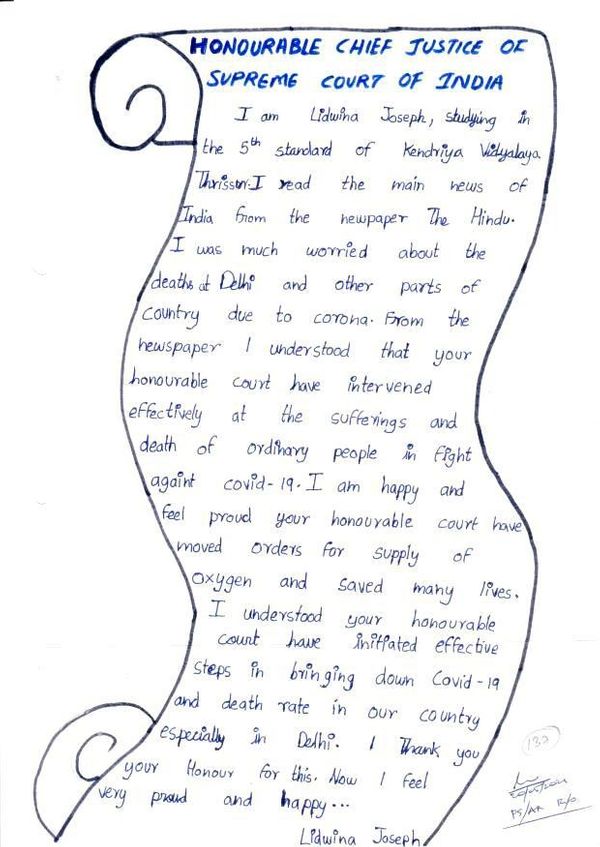 HONOURABLE CHIEF JUSTICE OF
SUPREME COURT OF INDIA
I am Lidwina Joseph, studying in
the 5th standard of Kendriya Vidyalaya
Thrissur. I read the main news of
India from the newpaper The Hindu.
I was much worried about the
deaths at Delhi and other parts of
country due to corona. From the
newspaper I understood that your
honourable court have intervened
effectively at the sufferings and
death of ordinary people in fight
againt covid-19. I am happy and
feel proud your honourable court have
moved orders for supply of
oxygen and saved many lives.
I understood your honourable
court have initiated effective
steps in bringing down Covid-19
and death rate in our country
especially in Delhi. I Thank you
your Honour for this. Now I feel
very proud and happy...
Lidwina Joseph
132
PS/AR